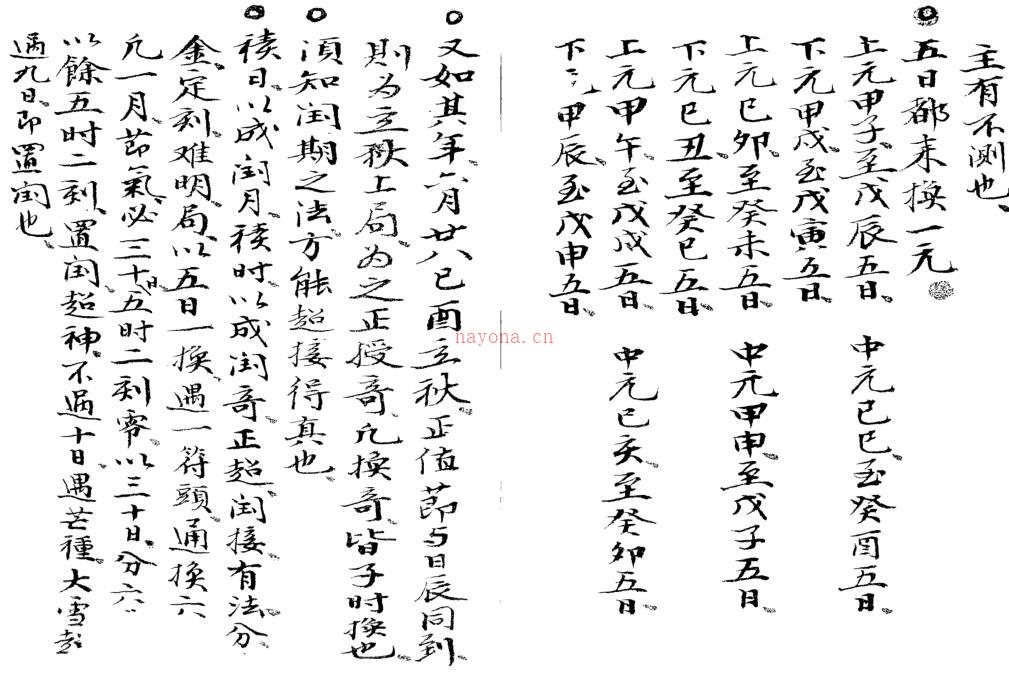 主有不测也
五日都来换一元
上元甲子至戊辰五日 中元己巳至癸酉五日
下元甲戌至戊寅五日
上元己卯至癸未五日 中元甲申至戊子五日
下元己丑至癸巳五日
上元甲午至戊戌五日 中元己亥至癸卯五日
下元甲辰至戊申五日
又如其年六月廿八己酉立秋正值莭与日辰同到
則为立秋上局为之正授竒凢换竒皆子时换也
湏知闰期之法方能超接得真也
積日以成闰月積时以成闰竒正超闰接有法分
金定刻难明局以五日一换遇一符頭通换六
凢一月莭氣必三十日五时二刻零以三十日分六
以餘五时二刻置闰超神不過十日遇芒種大雪
過九日即置闰也
nayona.cn